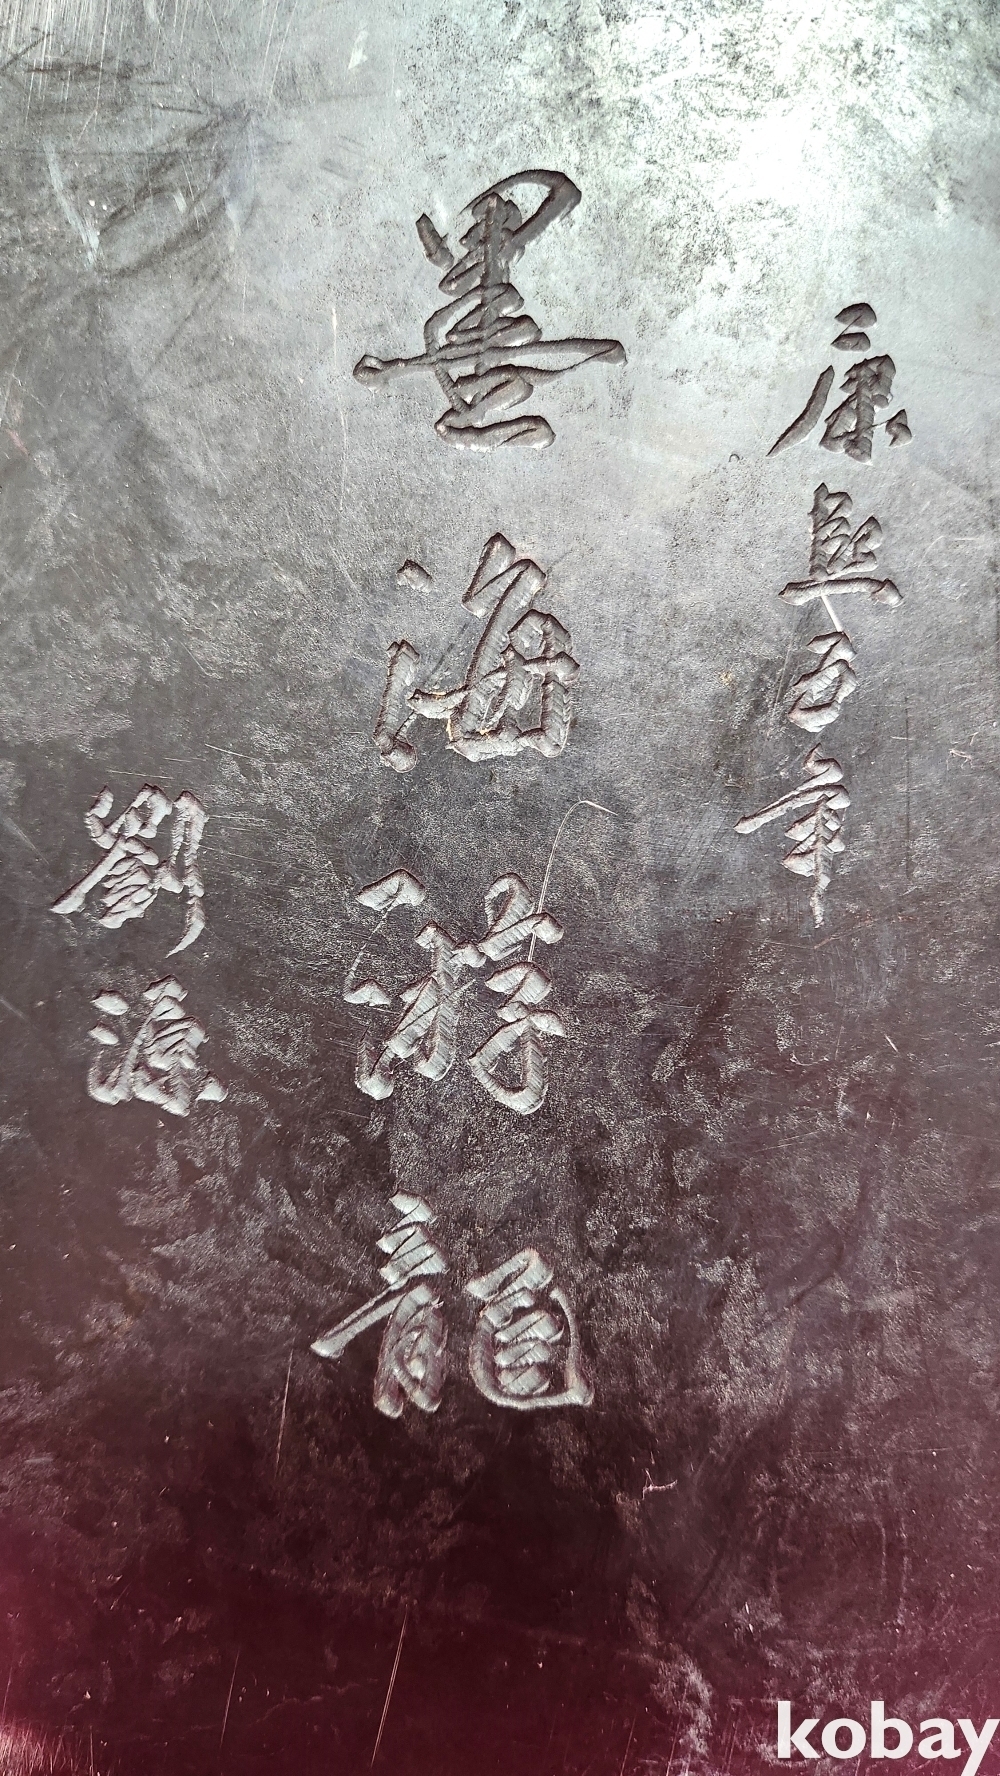 康熙五年
墨海游龍
劉源
kobay